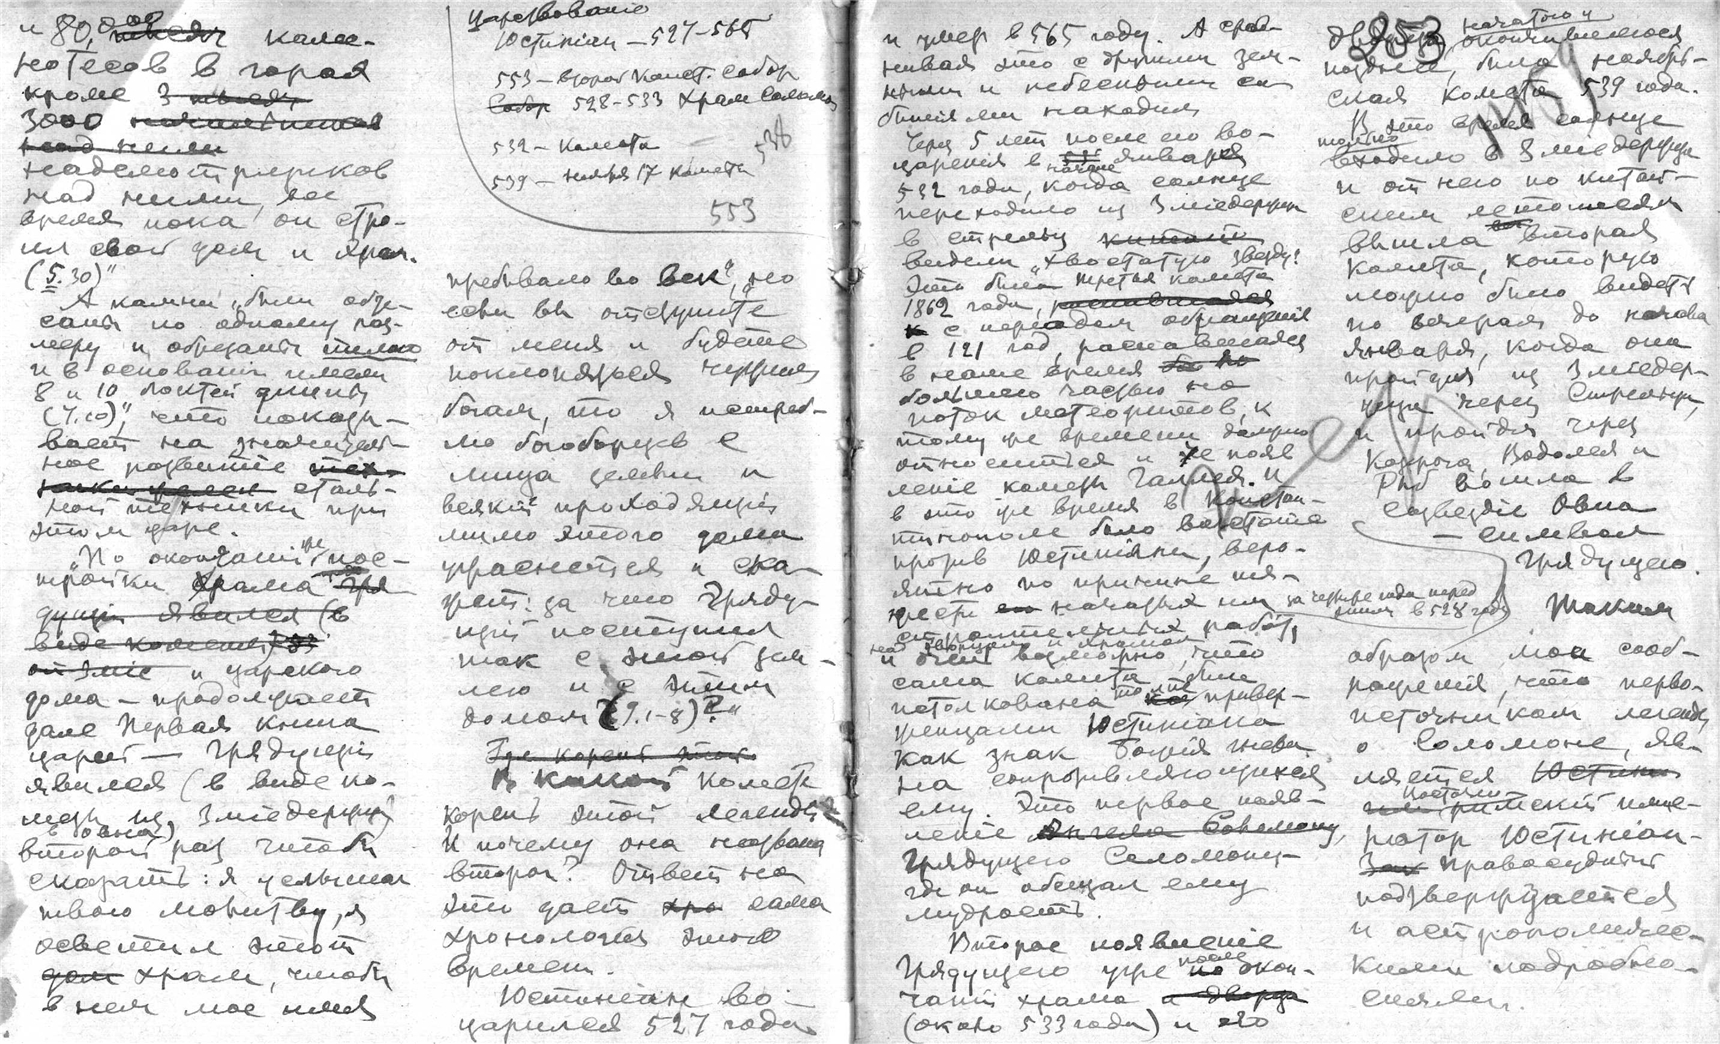 и 80,000 каме-
нотесов в горах
кроме
3000
надсмотрщиков
над ними, все
время пока он стро-
ил свой дом и храм.
(5.30)"
А камни "были обте-
саны по одному раз-
меру и обрезаны пилою
и в основании имели
8 и 10 локтей длины
(7.10)", что показы-
вает на значитель-
ное развитие
сталь-
ной техники при
этом царе.
"По окончании же пос-
тройки храма
и царского
дома — продолжает
дале Первая книга
царей — Грядущий
явился (в виде ко-
меты из Змиедержца
в овна)
второй раз чтобы
сказать: я услышал
твою молитву, я
осветил этот
храм, чтобы
в нем мое имя
царствование
Юстиниан — 527-565
553 — второй Конст. Собор
528-533 храм Соломона
532 — комета
538
539 — ноября 17 комета
553
пребывало во век", но
если вы отступите
от меня и будете
поклоняться чужим
богам, то я истреб-
лю богоборцев с
лица земли и
всякий проходящий
мимо этого дома
ужаснется и ска-
жет: за что Гряду-
щий поступил
так с этой зем-
лею и с этим
домом (9.1-8)?"
В какой комете
корень этой легенды
И почему она названа
второй? Ответ на
это дает сама
хронология этого
времени.
Юстиниан во-
царился 527 года
и умер в 565 году. А срав-
нивая это с другими зем-
ными и небесными со-
бытиями находим
Через 5 лет после его во-
царения в январе
532 года, когда солнце
переходило из Змиедержца
в стрельца
видели "хвостатую звезду".
Это была третья комета
1862 года,
с периодом обращения
в 121 год, распавшаяся
в наше время
большею частью на
поток метеоритов, к
тому же времени должно
относиться и появ
ление кометы Галлея. И
в это же время в Констан-
тинополе было восстание
против Юстиниана, веро-
ятно по причине тя-
жести начатых им за четыре года перед
этим в 528 году
строительных работ
над дворцами и храмом
и очень возможно, что
сама комета была
истолкована тогда привер-
женцами Юстиниана
как знак Божия гнева
на сопротивляющихся
ему. Это первое появ-
ление
Грядущего Соломону,
где он обещал ему
мудрость.
Второе появление
Грядущего уже после окон-
чания храма
(около 533 года) и его
853
дворца, начатого и
окончившегося
позднее, была ноябрь-
ская комета 539 года.
В это время солнце
только
входило в Змиедержца
и от него по китай-
ским летописям
вышла вторая
комета, которую
можно было видеть
по вечерам до начала
января, когда она
пройдя из Змиедер-
жца через Стрельца,
и пройдя через
Козерога, Водолея и
Рыб вошла в
созвездие Овна
— символ
Грядущего.
Таким
образом мои сооб-
ражения, что перво-
источником легенды
о Соломоне, яв-
ляется
восточно
римский импе-
ратор Юстиниан-
Правосудный
подтверждается
и астрономичес-
кими подробно-
стями.